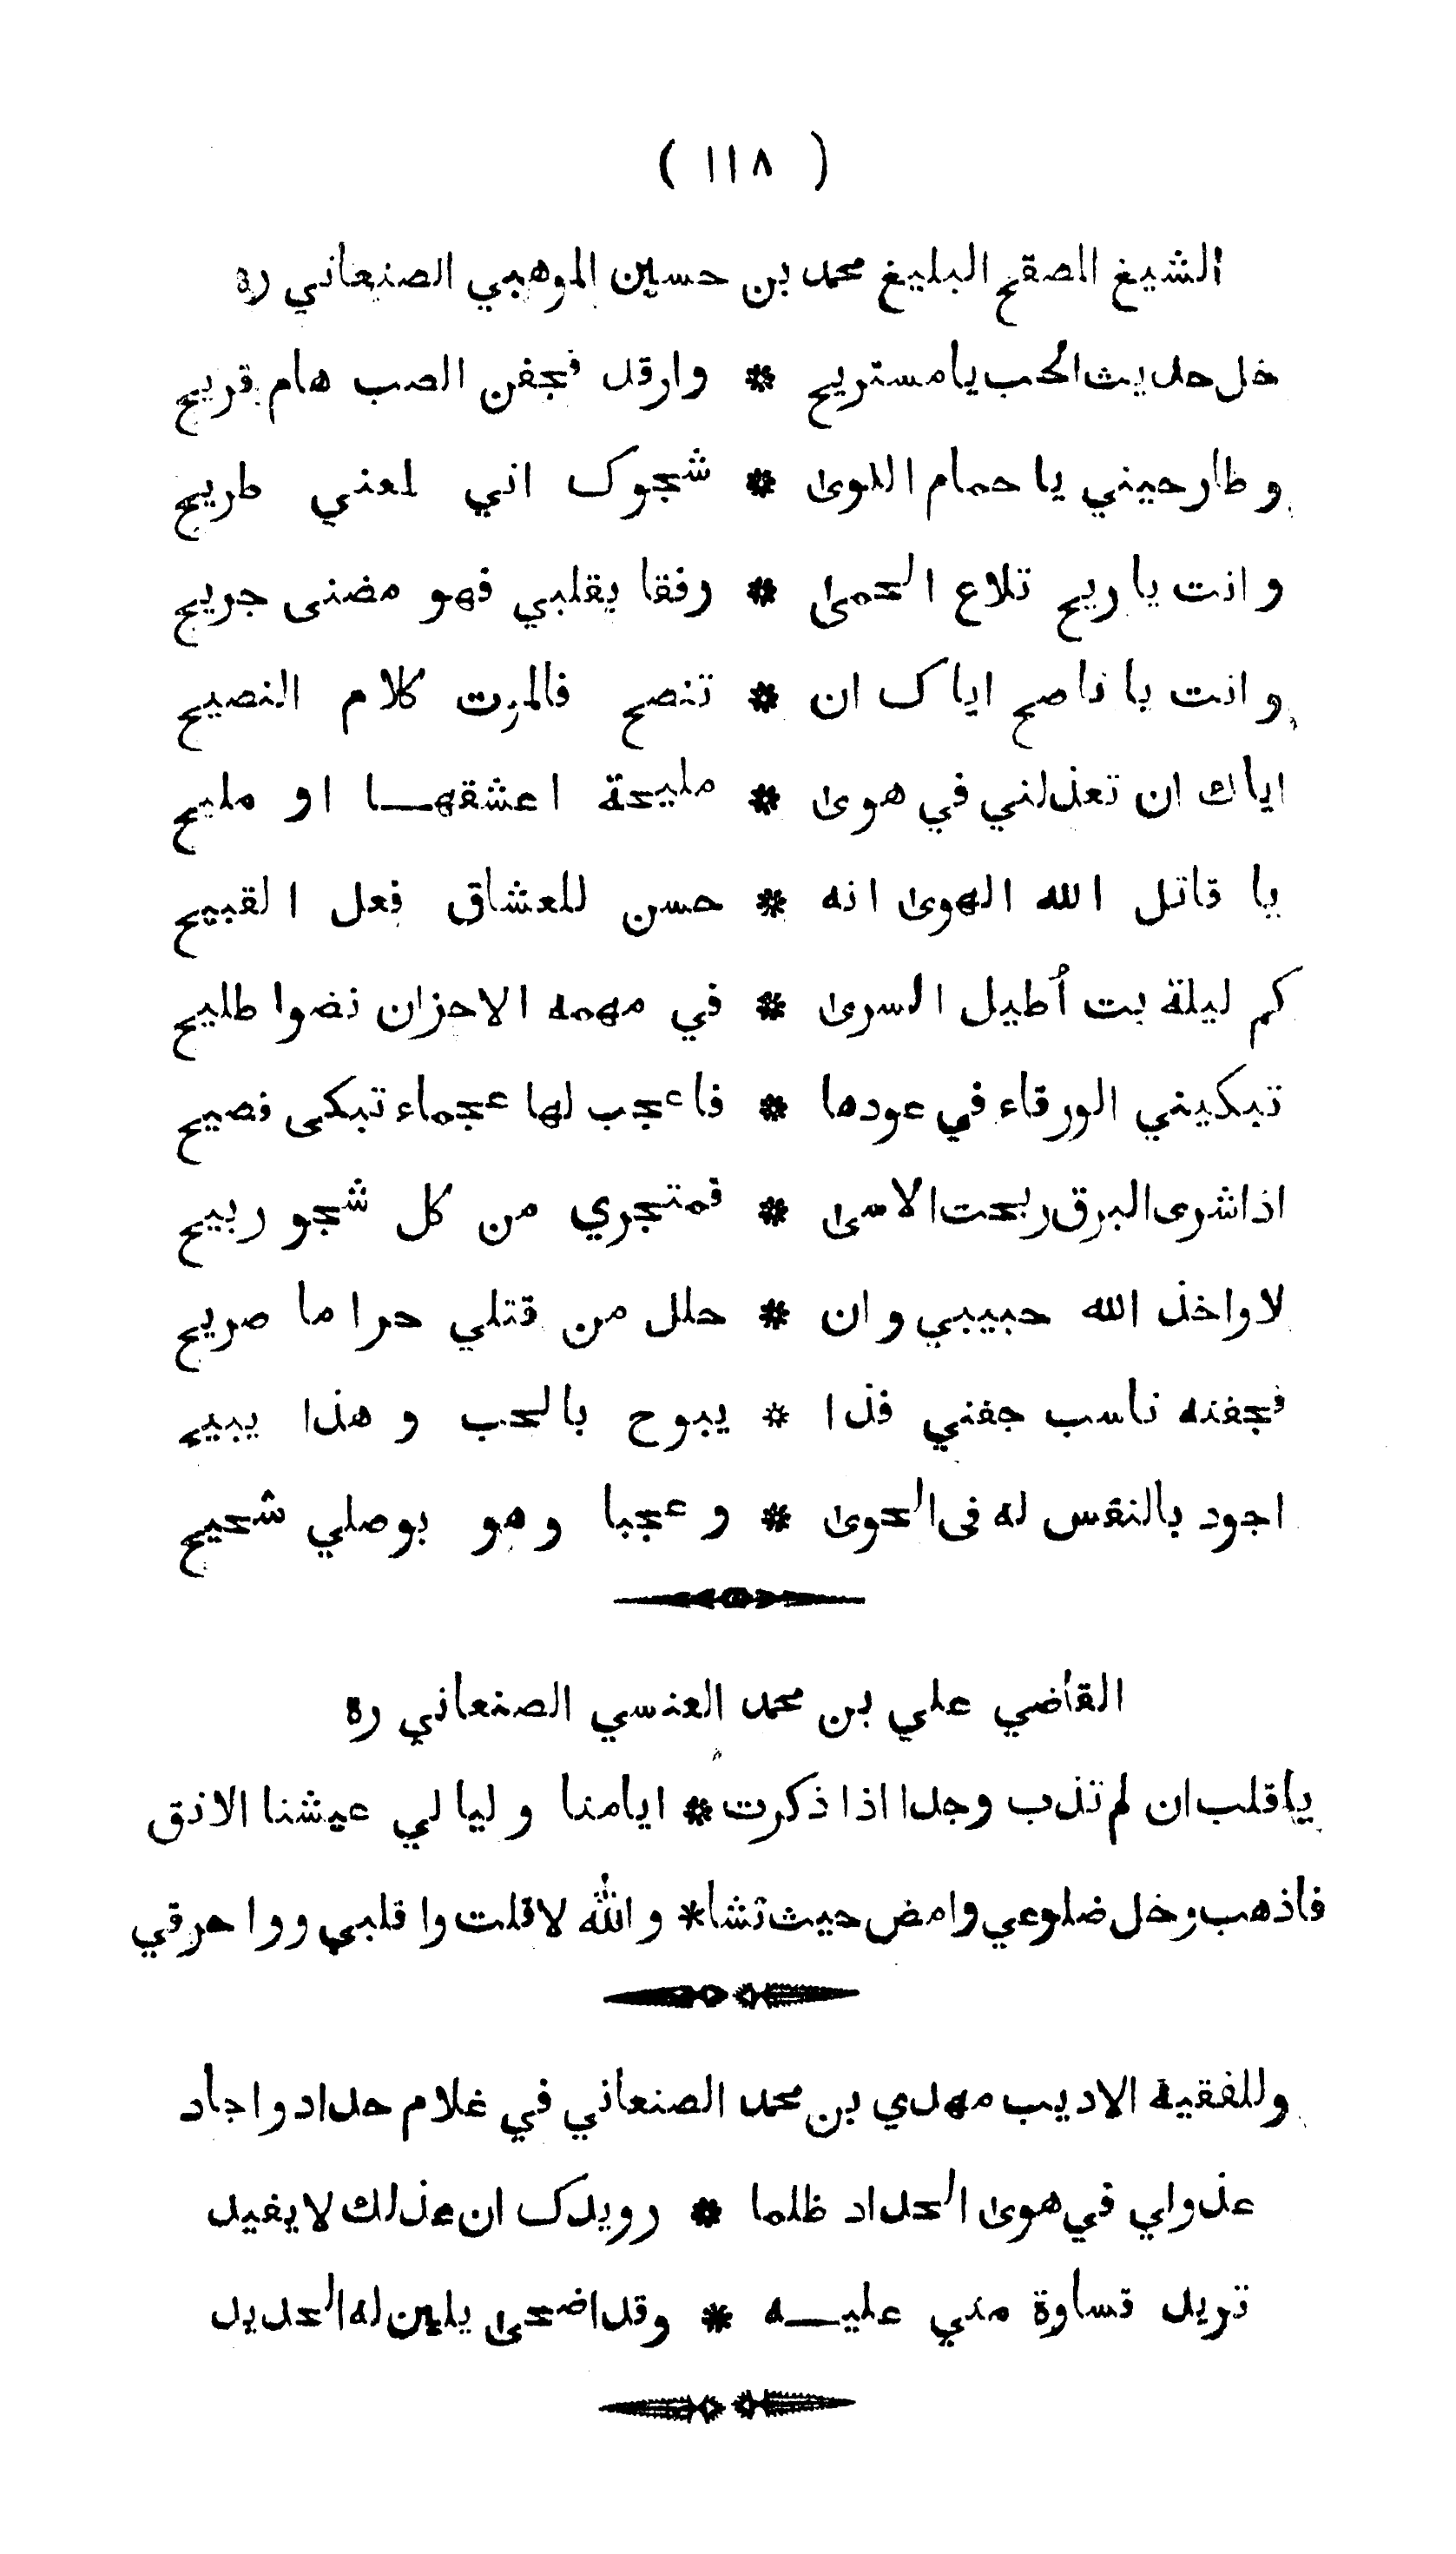 ( ١١٨ )
الشيخ المصقح البليغ محمد بن حسين الموهبي الصنعاني ره
خل حديث الحب يا مستريح * وارقد فجفن الصب هام قريح
وطارحيني يا حمام اللوى * شجوك اني لمعني طريح
وانت يا ريح تلاع الحمى * رفقا بقلبي فهو مضنى جريح
وانت يا ناصح اياك ان * تنصح فالموت كلام النصيح
اياك ان تعذلني في هوى * مليحة اعشقهـا او مليح
يا قاتل الله الهوى انه * حسن للعشاق فعل القبيح
كم ليلة بت أطيل السرى * في مهمه الاحزان نضوا طليح
تبكيني الورقاء في عودها * فاعجب لها عجماء تبكى فصيح
اذا شرى البرق ربحت الاسى * فمتجري من كل شجو ربيح
لا واخذ الله حبيبي وان * حلل من قتلي حراما صريح
فجفنه ناسب جفني فذا * يبوح بالحب وهذا يبيح
اجود بالنفس له فى الحوى * وعجبا وهو بوصلي شحيح
القاضي علي بن محمد العنسي الصنعاني ره
يا قلب ان لم تذب وجدا اذا ذكرت * ايامنا وليالي عيشنا الانق
فاذهب وخل ضلوعي وامض حيث تشا * والله لا قلت وا قلبي ووا حرقي
وللفقيه الاديب مهدي بن محمد الصنعاني في غلام حداد واجاد
عذولي في هوى الحداد ظلما * رويدك ان عذلك لا يفيد
تريد قساوة مني عليـه * وقد اضحى يلين له الحديد